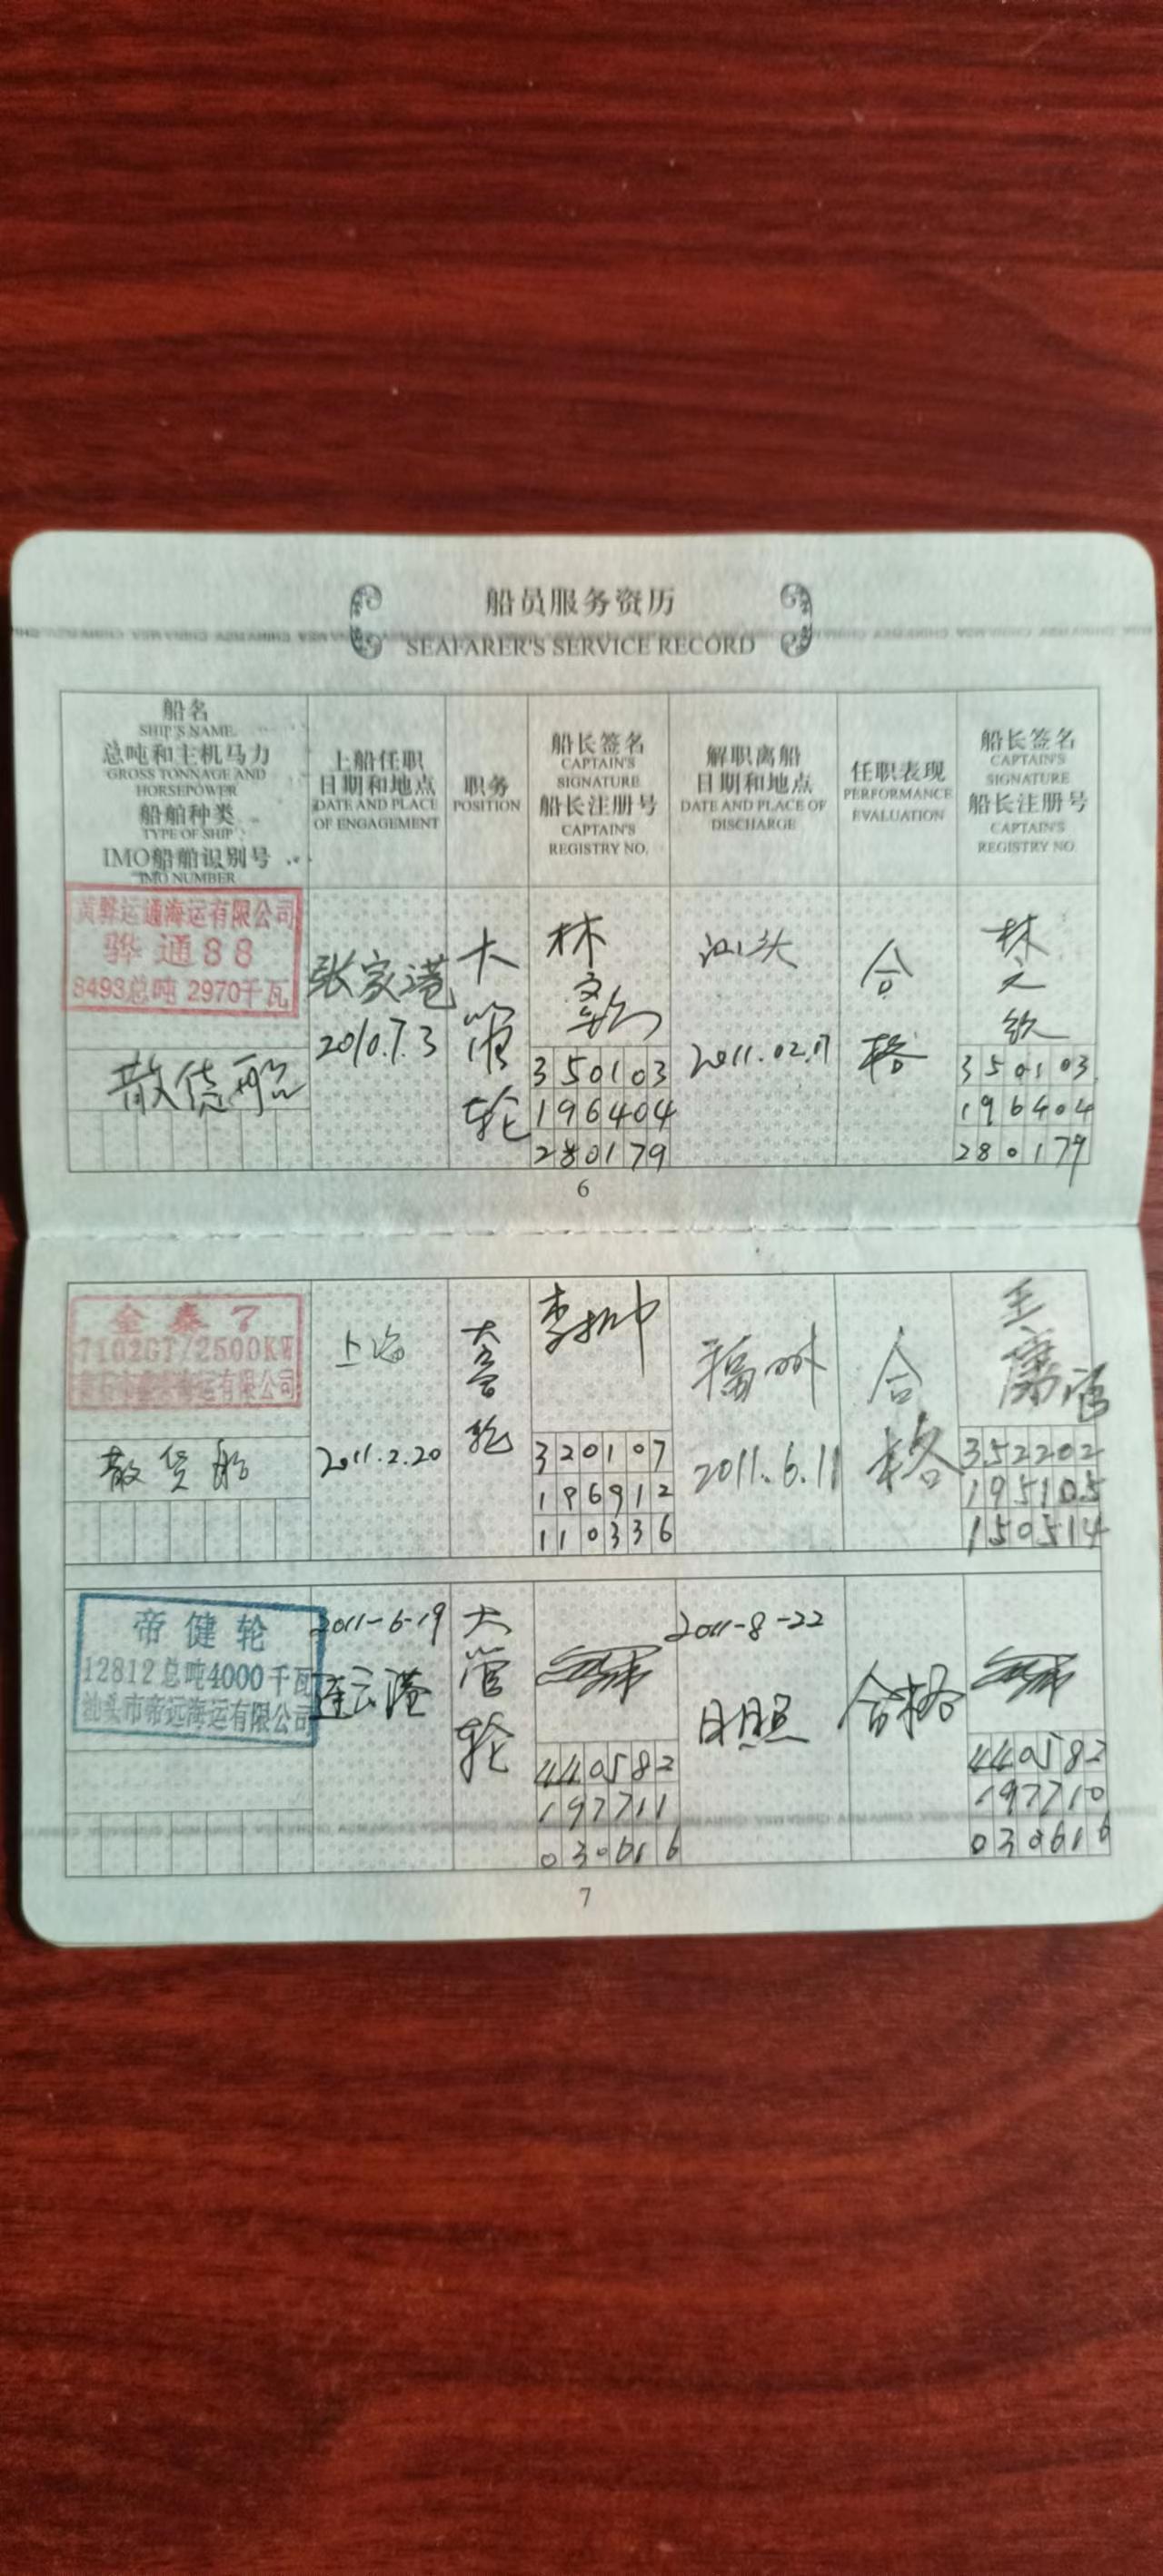 船员服务资历
SEAFARER'S SERVICE RECORD
船名
SHIP'S NAME
总吨和主机马力
GROSS TONNAGE AND
HORSEPOWER
船舶种类
TYPE OF SHIP
IMO船舶识别号
IMO NUMBER
上船任职
日期和地点
DATE AND PLACE
OF ENGAGEMENT
职务
POSITION
船长签名
CAPTAIN'S
SIGNATURE
船长注册号
CAPTAIN'S
REGISTRY NO.
解职离船
日期和地点
DATE AND PLACE OF
DISCHARGE
任职表现
PERFORMANCE
EVALUATION
船长签名
CAPTAIN'S
SIGNATURE
船长注册号
CAPTAIN'S
REGISTRY NO.
黄骅运通海运有限公司
骅通88
8493总吨 2970千瓦
散货船
张家港
2010.7.3
大管轮
林文钦
350103
196404
280179
汕头
2011.02.17
合格
林文钦
350103
196404
280179
6
金泰7
7102GT/2500KW
海运有限公司
散货船
上海
2011.2.20
大管轮
320107
196912
110336
福州
2011.6.11
合格
王
352202
195105
150514
帝健轮
12812总吨4000千瓦
汕头市帝远海运有限公司
2011-6-19
连云港
大管轮
440582
197711
030616
2011-8-22
日照
合格
440582
197710
030616
7